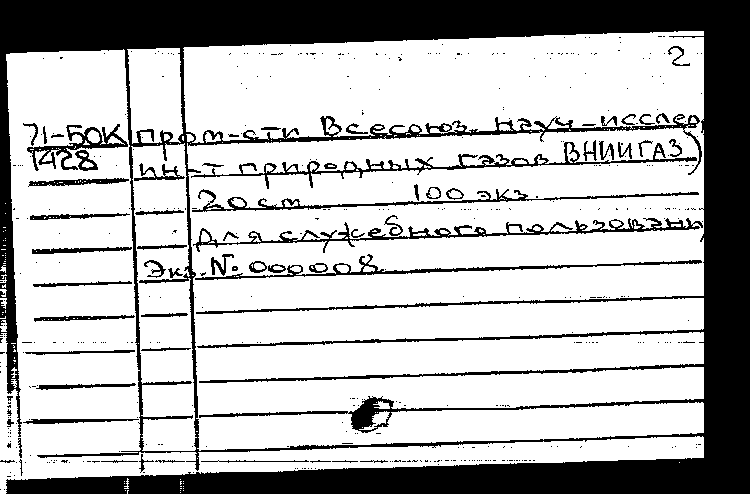 2
71-БОК пром-сти Всесоюз. науч-исслед
1428 ин-т природных газов ВНИИГАЗ)
20 cm 100 экз.
Для служебного пользовани
Экз. № 000008